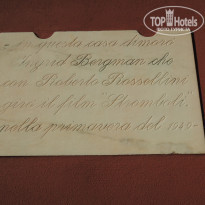 TOP Hotels
In questa casa dimorò
Ingrid Bergman che
con Roberto Rossellini
girò il film "Stromboli"
nella primavera del 1949